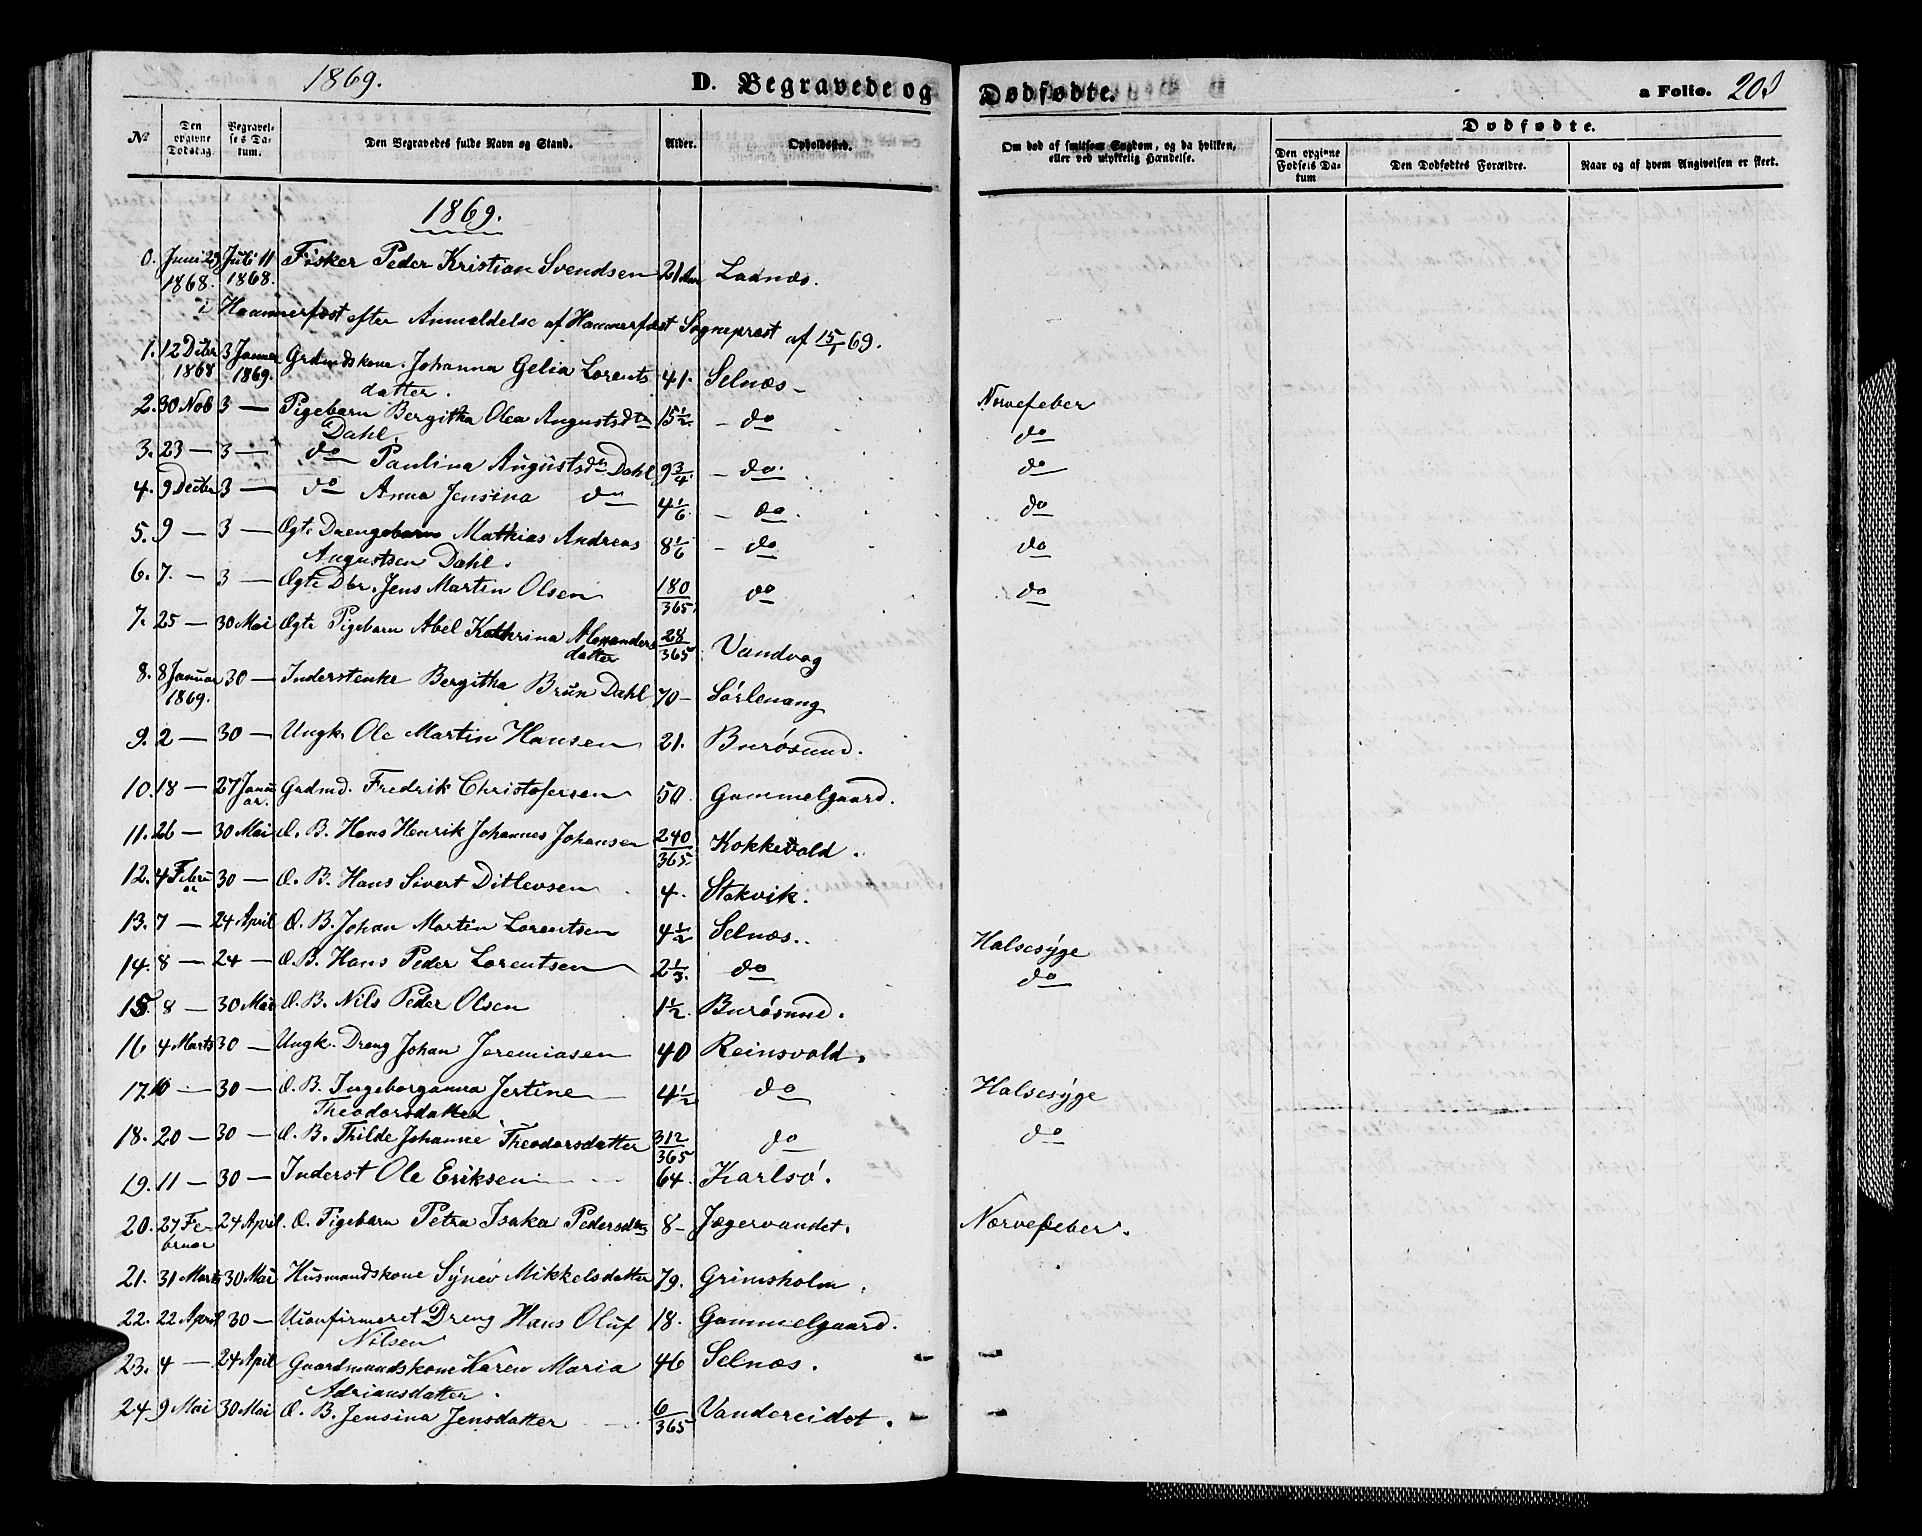 1869. D. Begravede og Dødfødte. a Folio. 203
Dødfødte.
No Den opgivne Dødsdag. Begravelses Datum. Den Begravedes fulde Navn og Stand. Alder. Opholdssted. Om død af smitsom Sygdom, og da hvilken, eller ved ulykkelig Hændelse. Den opgivne Fødsels Datum Den Dødfødtes Forældre. Naar og af hvem Angivelsen er skeet.
1869.
0. Juni 29 1868. Juli 11 1868. Fisker Peder Kristian Svendsen 21 Laanæs.
i Hammerfest efter Anmeldelse af Hammerfest Sognepræst af 15/1 69.
1. 12 Decbr 1868 3 Januar 1869. Grdmdskone. Johanna Gelia Lorents 41. Selnæs -
datter.
2. 30 Nob 3 — Pigebarn Bergitha Olea Augustsdtr 15 1/2. - do Nervefeber
Dahl.
3. 23 — 3 — do Paulina Augustsdtr Dahl 9 3/4. - do. do
4. 9 Decbr 3 — do Anna Jensina do 4 1/6. - do. do
5. 9 — 3 — Ægte Drengebarn Mathias Andreas 8 1/6 - do do
Augustsen Dahl.
6. 7. — 3 — Ægte Dbr. Jens Martin Olsen 180/365. do do
7. 25 — 30 Mai Ægte Pigebarn Abel Kathrina Alexanders 28/365. Vandvag
datter
8. 8 Januar 1869. 30 — Inderstenke Bergitha Brun Dahl 70 - Sørlenang
9. 2 — 30 — Ungk. Ole Martin Hansen 21. Burøsund.
10. 18 — 27 Januar. Grdmd. Fredrik Christofersen 50. Gammelgaard.
11. 26 — 30 Mai Æ. B. Hans Henrik Johannes Johansen 240/365. Kokkevold.
12. 4 Februar 30 — Æ. B. Hans Sivert Ditlevsen 4. Stakvik.
13. 7 — 24 April Æ. B. Johan Martin Lorentsen 4 1/2 Selnæs.. Halsesyge
14. 8 — 24 — Æ. B. Hans Peder Lorentsen 2 1/3. do do
15. 8 — 30 Mai Æ. B. Nils Peder Olsen 1 1/2 Burøsund.
16 4 Marts 30 — Ungk. Dreng Johan Jeremiasen 40 Reinsvold.
17. 10 — 30 — Æ. B. Ingeborganna Jertine 4 1/2 do Halsesyge
Theodorsdatter
18. 20 — 30 — Æ. B. Thilde Johanne Theodorsdatter 312/365 do do
19. 11 — 30 — Inderst Ole Eriksen 64. Karlsø.
20. 27 Februar 24 April. Æ. Pigebarn Petra Isaka Pedersdtr 8 - Jægervandet. Nervefeber.
21. 31 Marts 30 Mai Husmandskone Synev Mikkelsdatter 79. Grimsholm.
22. 22 April 30 — Uconfirmeret Dreng Hans Oluf 18. Gammelgaard.
Nilsen
23. 4 — 24 April Gaardmandskone Karen Maria 46 Selnæs.
Adriansdatter.
24. 9 Mai 30 Mai Æ. B. Jensina Jensdatter 6/365 Vandereidet.